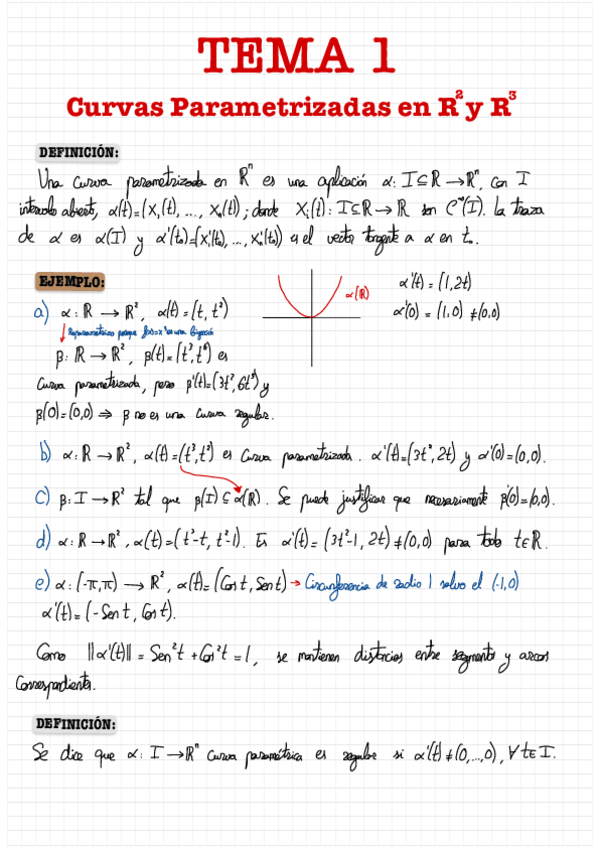 TEMA 1
Curvas Parametrizadas en R² y R³
DEFINICIÓN:
Una curva parametrizada en Rⁿ es una aplicación α: I⊆R → Rⁿ, con I
intervalo abierto, α(t)=(x₁(t), ..., xₙ(t)); donde xᵢ(t): I⊆R → R son C^∞(I). La traza
de α es α(I) y α'(t₀)=(x₁'(t₀), ..., xₙ'(t₀)) es el vector tangente a α en t₀.
EJEMPLO:
a) α: R → R², α(t)=(t, t²)
Reparametrizo porque f(x)=x³ es una biyección
β: R → R², β(t)=(t³, t⁶) es
curva parametrizada, pero β'(t)=(3t², 6t⁵) y
β'(0)=(0,0) ⇒ β no es una curva regular.
α(R)
α'(t) = (1, 2t)
α'(0) = (1, 0) ≠ (0,0)
b) α: R → R², α(t)=(t³, t²) es curva parametrizada. α'(t)=(3t², 2t) y α'(0)=(0,0).
c) β: I → R² tal que β(I) ⊆ α(R). Se puede justificar que necesariamente β'(0)=(0,0).
d) α: R → R², α(t)=(t³-t, t²-1). Es α'(t) = (3t²-1, 2t) ≠ (0,0) para todo t∈R.
e) α: (-π,π) → R², α(t)=(Cos t, Sen t) → Circunferencia de radio 1 salvo el (-1,0)
α'(t)=(-Sen t, Cos t).
Como ||α'(t)|| = Sen²t + Cos²t = 1, se mantienen distancias entre segmentos y arcos
correspondientes.
DEFINICIÓN:
Se dice que α: I → Rⁿ curva paramétrica es regular si α'(t) ≠ (0,...,0), ∀t∈I.